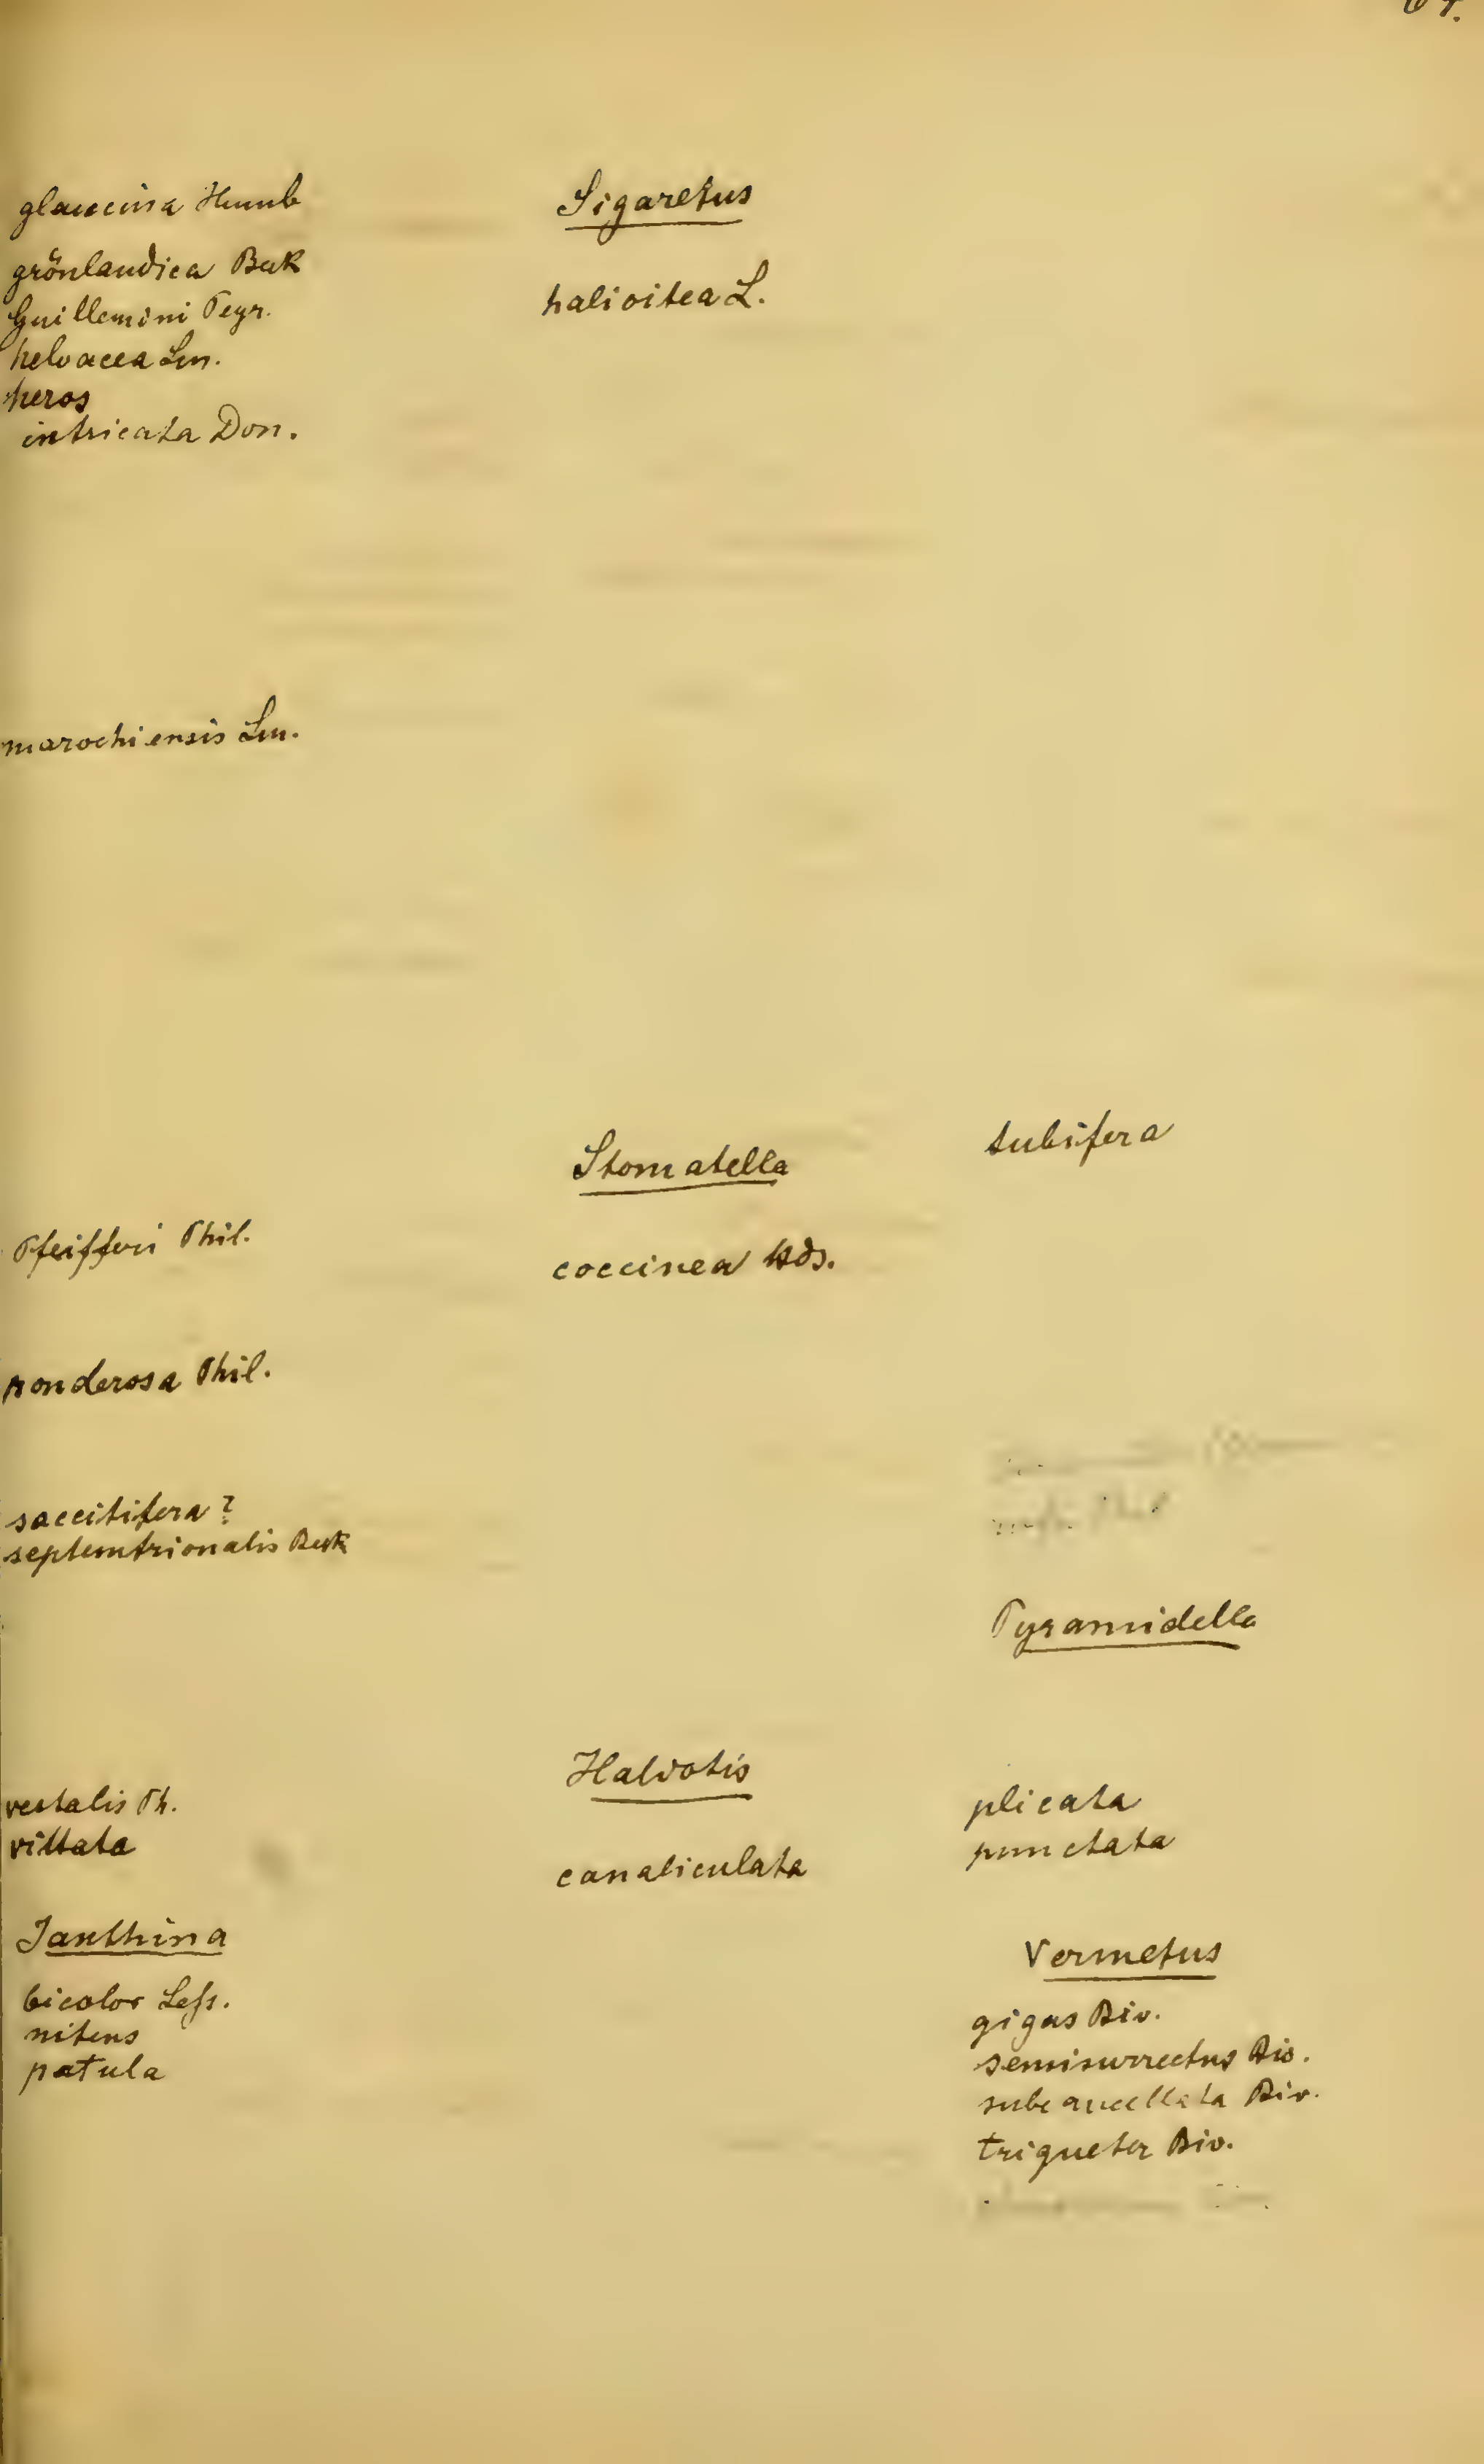 glaucina Humb
grönlandica Beck
Guillemini Peyr.
helvacea Lm.
heros
intricata Don.
marochiensis Lm.
Pfeifferi Phil.
ponderosa Phil.
saccitifera ?
septemtrionalis Beck
vestalis Ph.
vittata
Ianthina
bicolor Less.
nitens
patula
Sigaretus
halioitea L.
Stomatella
coccinea Ads.
Haliotis
canaliculata
tubifera
Pyramidella
plicata
punctata
Vermetus
gigas Biv.
semisurrectus Biv.
Biv.
triqueter Biv.